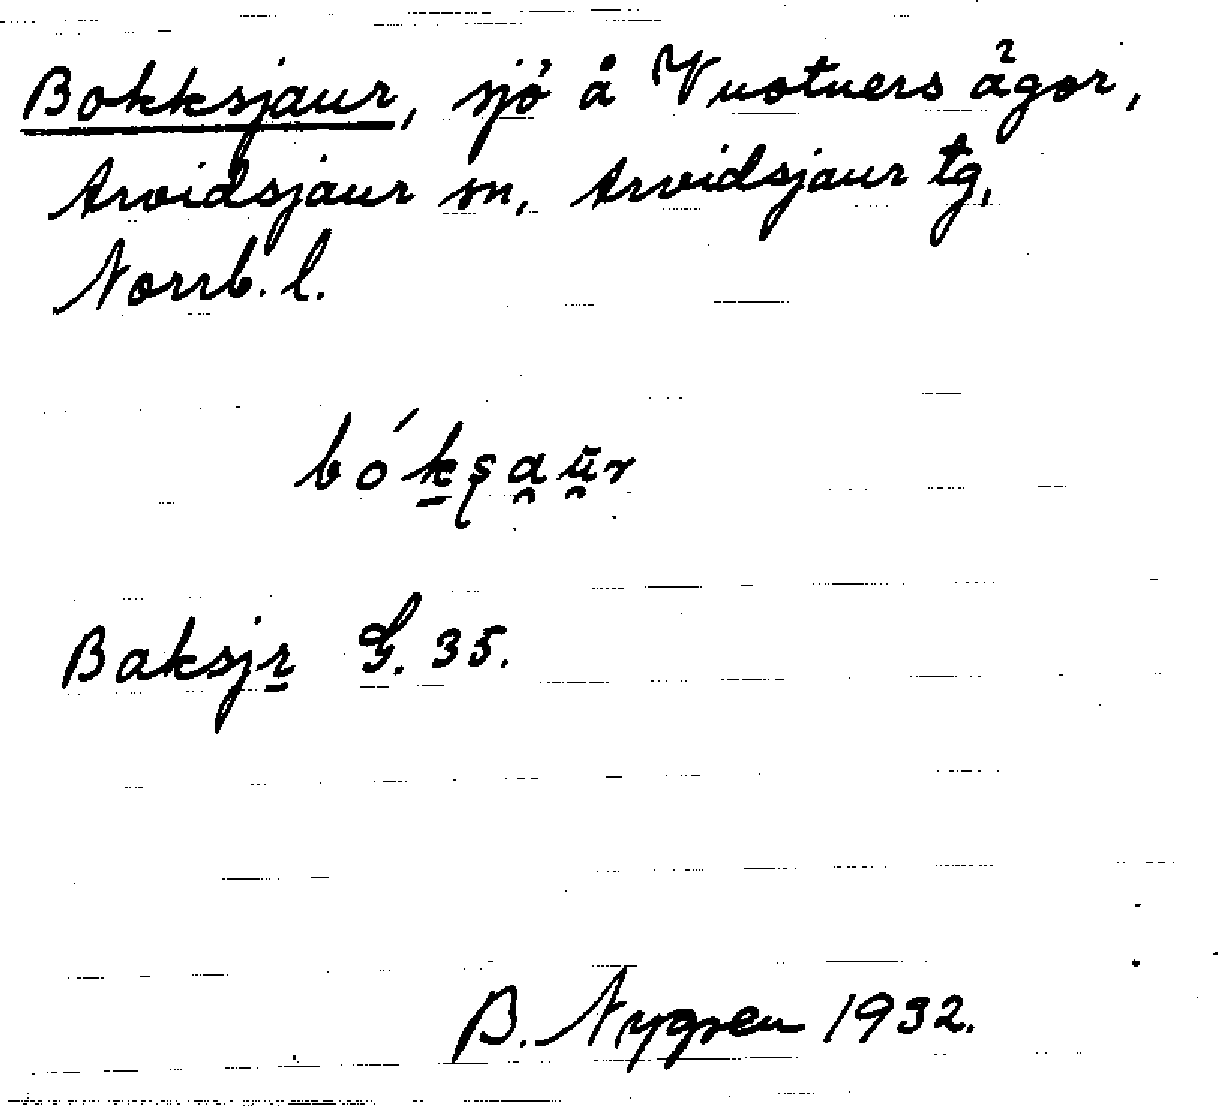 Bokksjaur, sjö å Vuotners ägor,
Arvidsjaur sn, Arvidsjaur tg,
Norrb. l.
bók̠ʂa̯ūr
Baksjr̠ G. 35.
B. Nygren 1932.